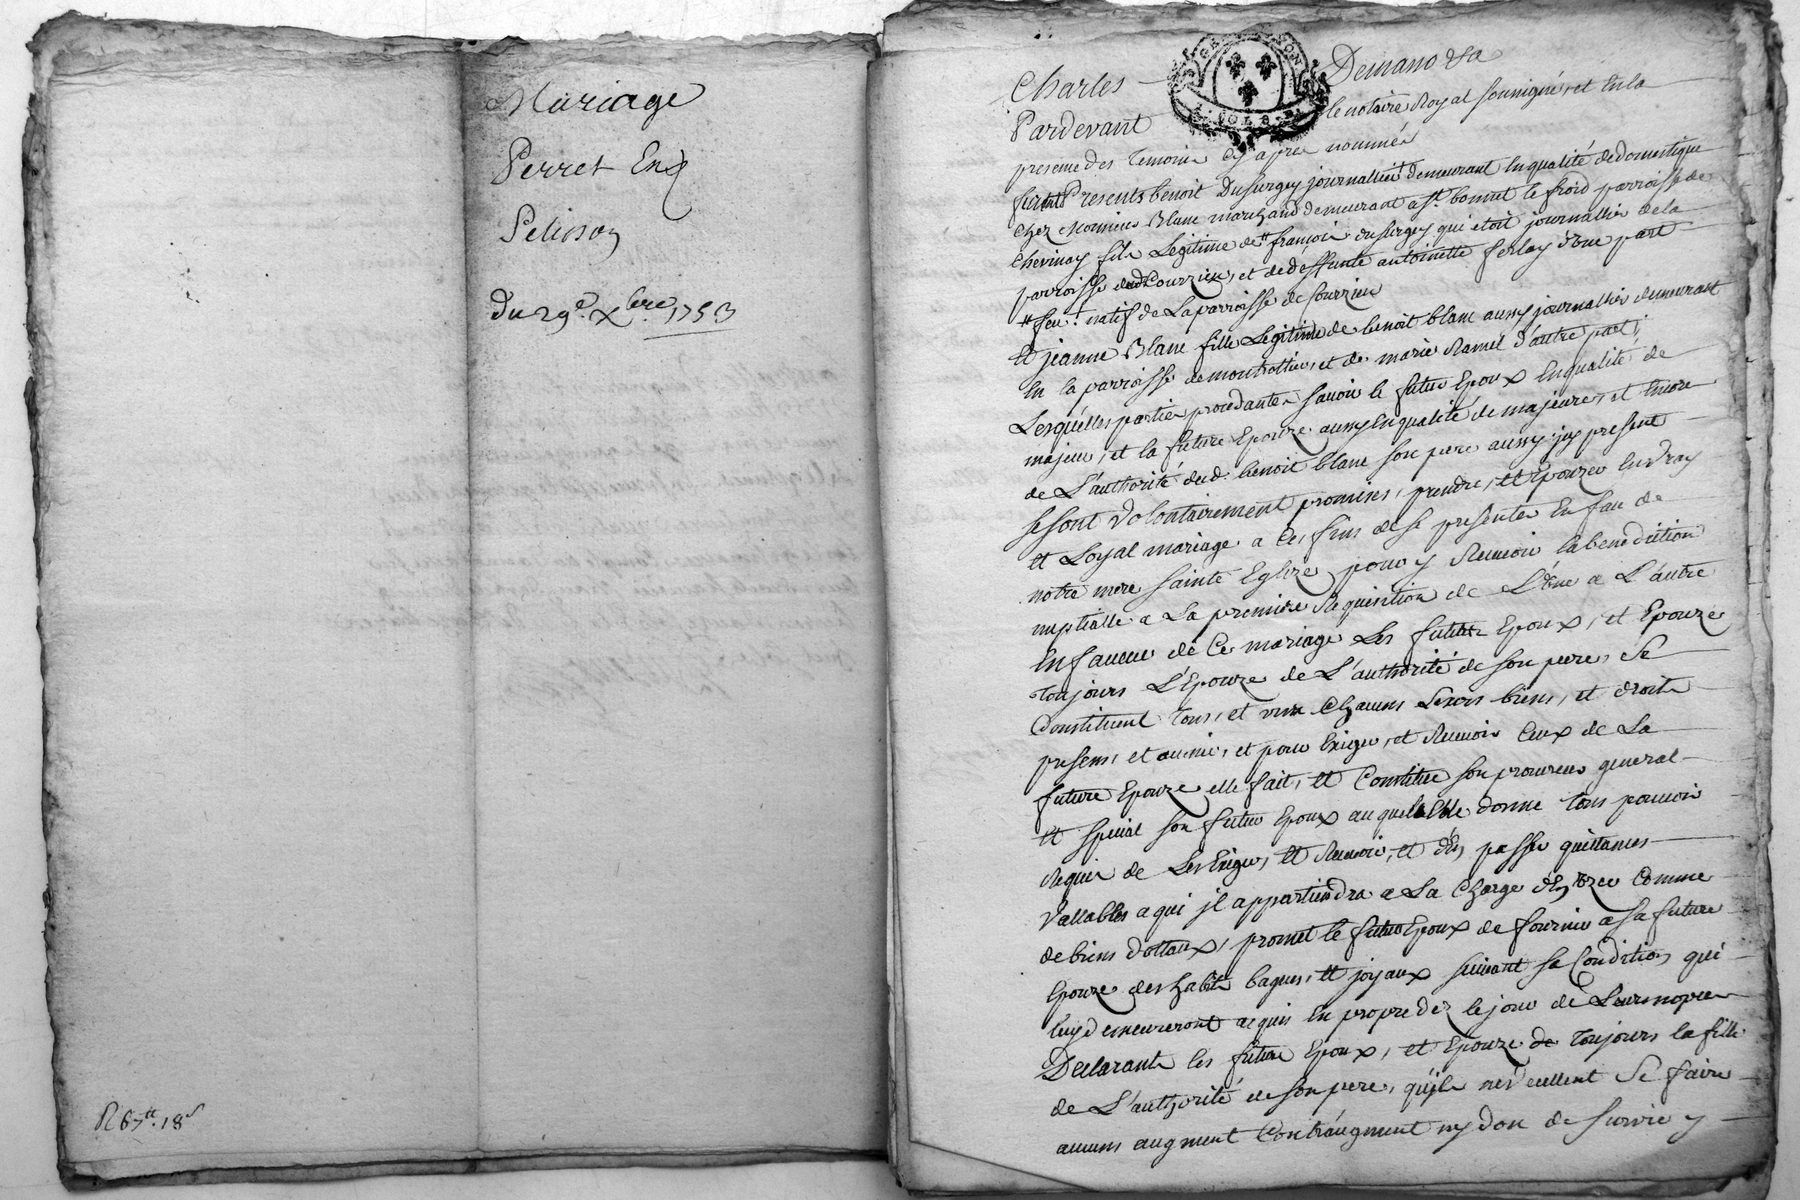 Mariage
Perret Et
Pelisson
du 29e. Xbre. 1753
R 67tt. 18s
GEN LYON
2 SOLS
Charles Demano
Pardevant le notaire Royal soussigné, et En la
presence des temoins Cy apres nommés
furent Presents benoit Dusurgey journallier demeurant En qualité de domestique
chez Blanc marchand demeurant a St. bonnet le froid parroisse de
chevinay fils Legitime de tt françois dusurgey qui etoit journallier de la
parroisse de Courzieu, et de deffunte antoinette ferlay d'une part
tt feu. natif de La parroisse de Courzieu
Et jeanne Blanc fille Legitime de benoit blanc aussy journallier demeurant
En la parroisse de montrottier, et de marie Ramel d'autre part;
Lesquelles parties procedantes savoir le futur Epoux En qualité de
majeur, et la future Epouze aussy En qualité de majeure, et Encore
de L'authorité dud. benoit blanc son pere aussy jcy present
se sont volontairement promises, prendre, et Epouzer En vray
et Loyal mariage a Ces fins de se presenter En face de
notre mere sainte Eglize pour y Recevoir la benediction
nuptialle a La premiere Requisition de L'Une a L'autre
En faveur de Ce mariage Les futurs Epoux, et Epouze
toujours L'Epouze de L'authorité de son pere, Se
Constituent tous, et un Chacuns Leurs biens, et droits
presens, et avenir, et pour Exiger, et Recevoir Ceux de La
future Epouze elle fait, et Constitue son procureur general
Et special son futur Epoux auquel Elle donne tous pouvoir
Requis de Les Exiger, Et Recevoir, et d'En passer quittances
Vallables a qui jl appartiendra a La Charge d'En Uzer Comme
de biens dottaux, promet le futur Epoux de fournir a sa future
Epouze des habits bagues, et joyaux suivant sa Condition qui
luy demeureront acquis En propre dez le jour de Leurs nopces
Declarants les future Epoux, et Epouze de toujours la fille
de L'authorité de son pere, qu'jls ne veullent Se faire
aucuns augment Contraugment ny don de survie y